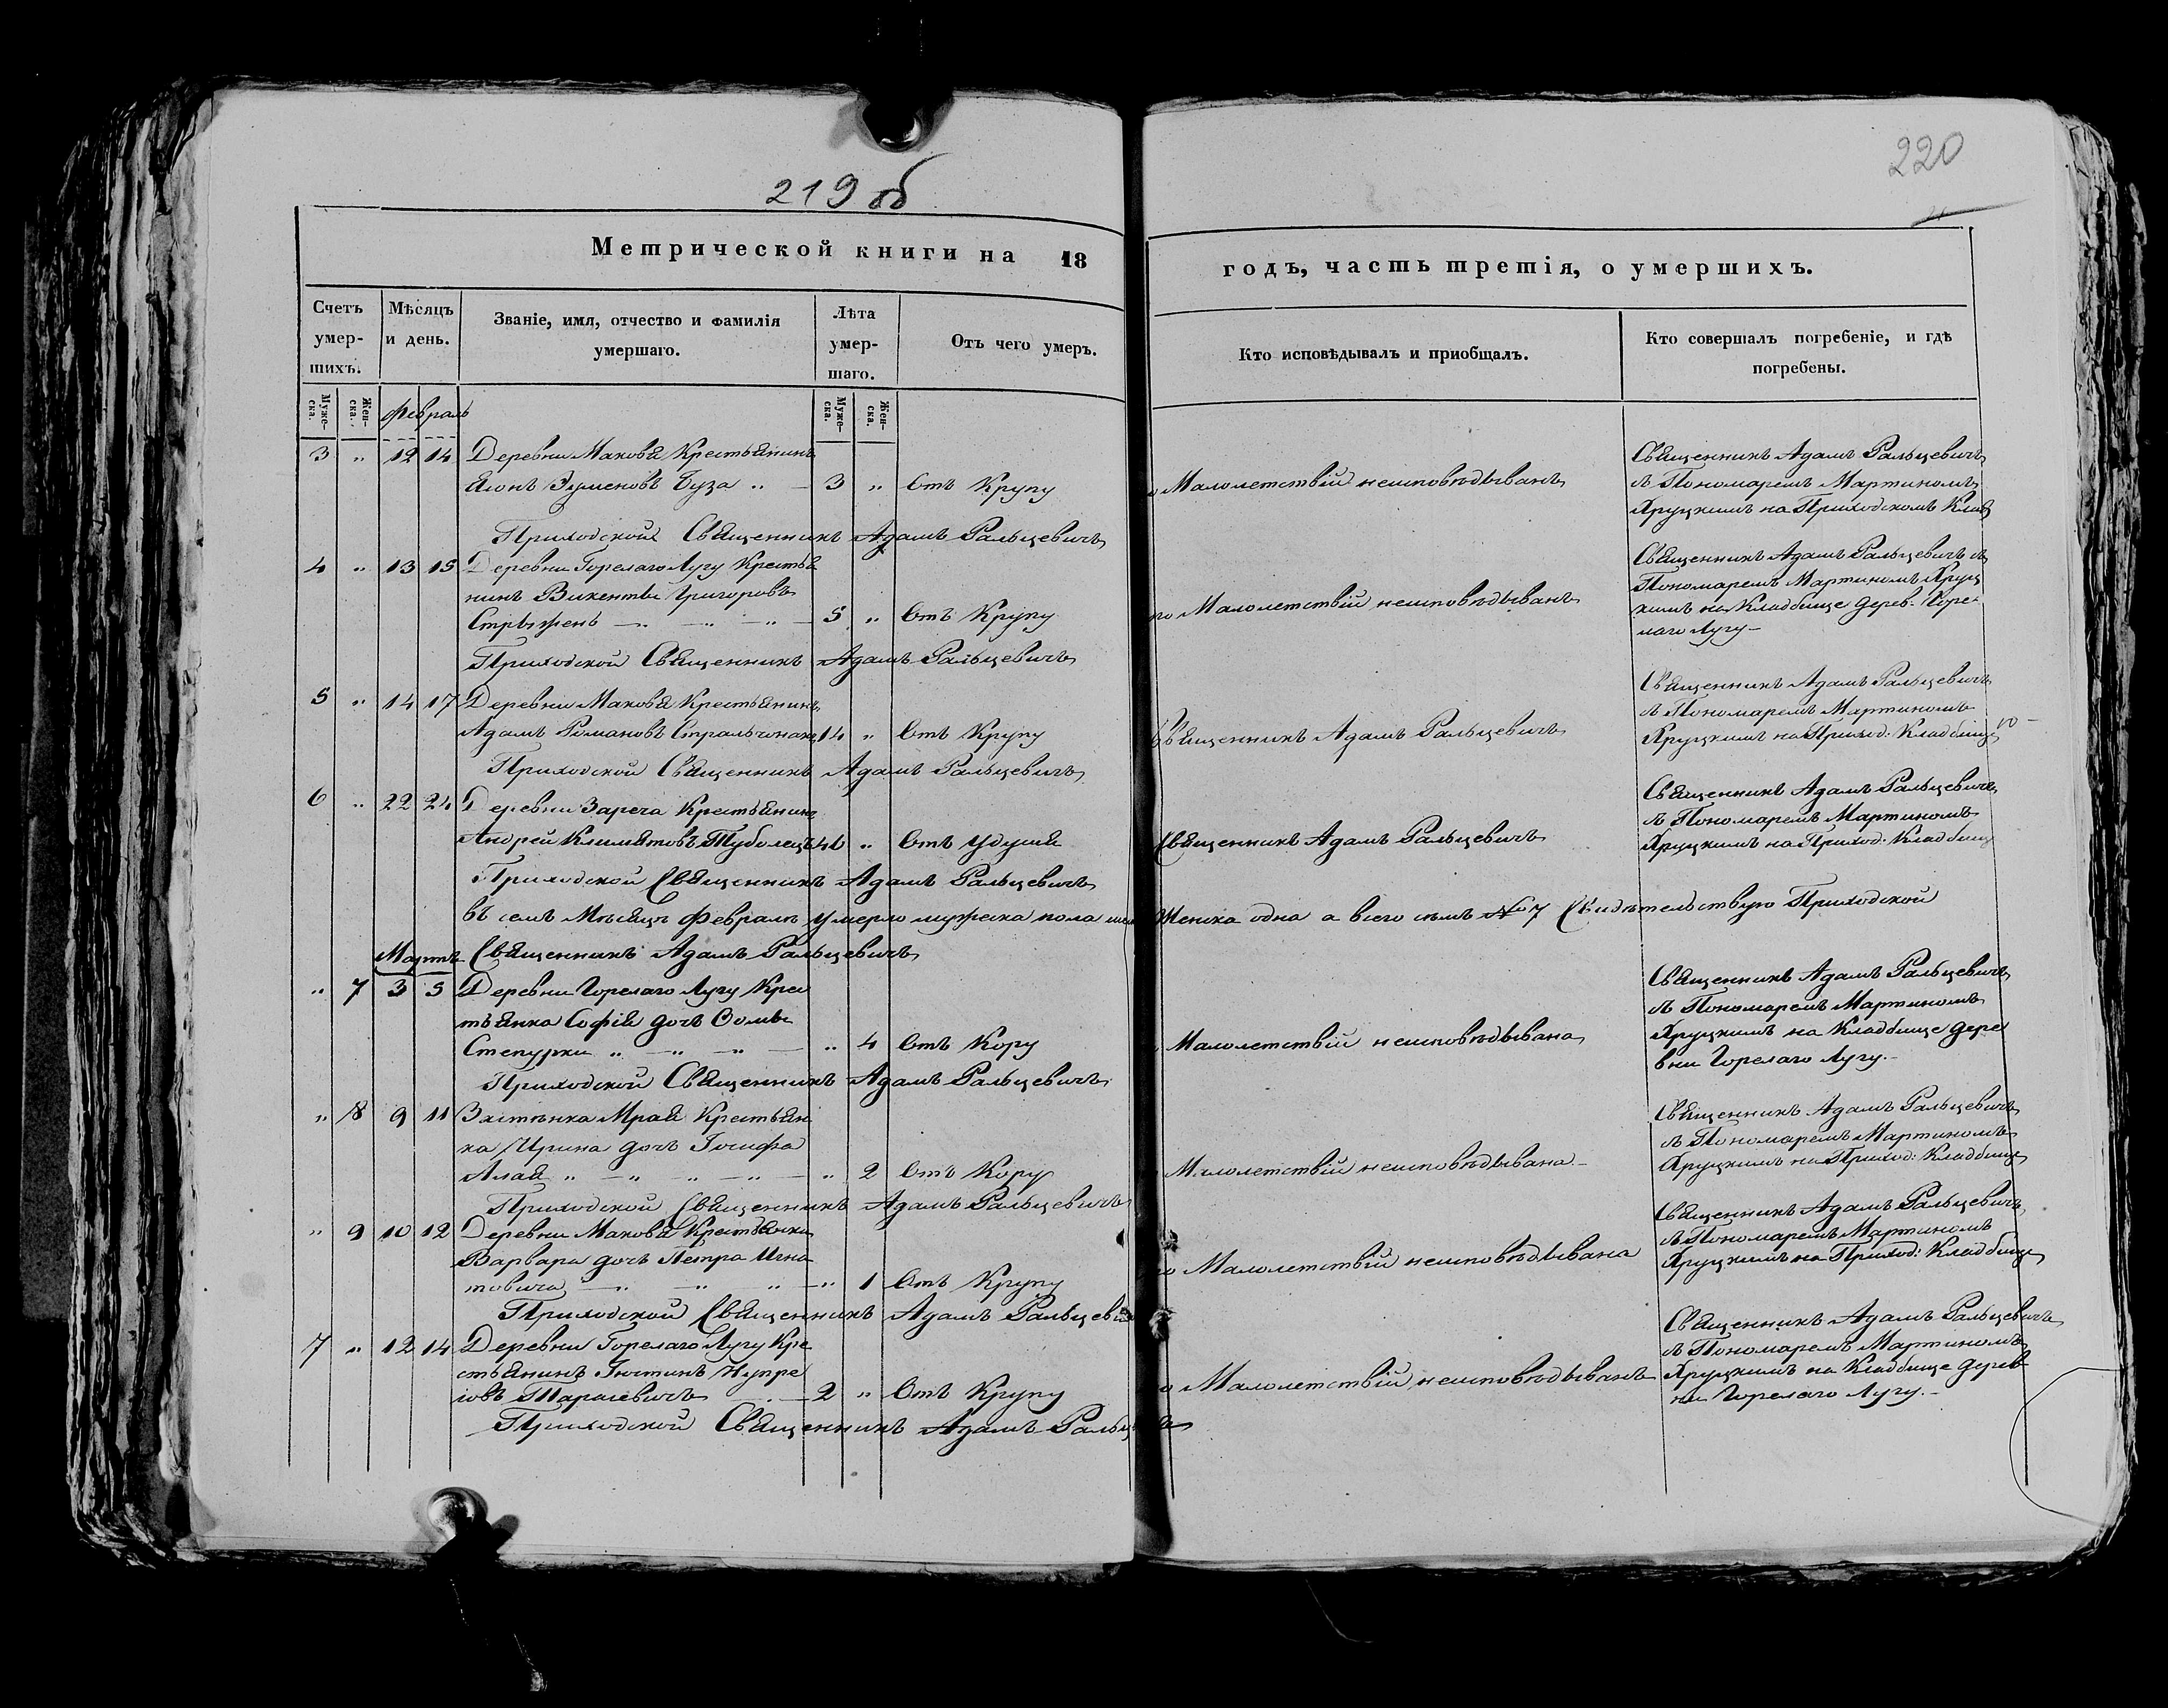 219 об
220
Метрической книги на 18
годъ, часть третія, о умершихъ.
Счетъ умер-шихъ.
Мѣсяцъ и день.
Званіе, имя, отчество и фамилія умершаго.
Лѣта умер-шаго.
Отъ чего умеръ.
Кто исповѣдывалъ и приобщалъ.
Кто совершалъ погребеніе, и гдѣ погребены.
Муже-ска. Жен-ска.
Февраль
Муже-ска. Жен-ска.
3 " 12 14 Деревни Маковя Крестьянинъ
Буза " — 3 " Отъ Крупу
Малолетствій неисповѣдыванъ
Священникъ Адамъ Ральцевичъ
съ Пономаремъ Мартиномъ
Хруцкимъ на Приходскомъ Клад
Приходской Священникъ Адамъ Ральцевичъ
4 " 13 15 Деревни Горелаго Лугу Крестья
нинъ Викентьи Григоровъ
Стрыжень — " — " — " — 5 " Отъ Крупу
по Малолетствій неисповѣдыванъ
Священникъ Адамъ Ральцевичъ съ
Пономаремъ Мартиномъ Хруц
кимъ на Кладбище дерев: Горе
лаго Лугу —
Приходской Священникъ Адамъ Ральцевичъ
5 " 14 17 Деревни Маковя Крестьянинъ
Адамъ Романовъ Стральчонакъ 14 " Отъ Крупу
Священникъ Адамъ Ральцевичъ
Священникъ Адамъ Ральцевичъ
съ Пономаремъ Мартиномъ
Хруцкимъ на Приход: Кладбище
Приходской Священникъ Адамъ Ральцевичъ
6 " 22 24 Деревни Зареча Крестьянинъ
Андрей Климятовъ Туболецъ " Отъ Удушя
Священникъ Адамъ Ральцевичъ
Священникъ Адамъ Ральцевичъ
съ Пономаремъ Мартиномъ
Хруцкимъ на Приход: Кладбищ
Приходской Священникъ Адамъ Ральцевичъ
въ семъ Мѣсяцѣ Февралѣ умерло мужеска пола Женска одна а всего семъ № 7 Свидѣтельствую Приходской
Священникъ Адамъ Ральцевичъ
Мартъ
" 7 3 5 Деревни Горелаго Лугу Крес
тьянка Софія дочь Фомы
Степурки " — " — " — " 4 Отъ Кору
Малолетствій неисповѣдывана
Священникъ Адамъ Ральцевичъ
съ Пономаремъ Мартиномъ
Хруцкимъ на Кладбище дере
вни Горелаго Лугу. —
Приходской Священникъ Адамъ Ральцевичъ
" 8 9 11 Застѣнка Мрая Крестьян
ка Ирина дочь Іосифа
Алая " — " — " — " — " 2 Отъ Кору
Малолетствій неисповѣдывана —
Священникъ Адамъ Ральцевичъ
съ Пономаремъ Мартиномъ
Хруцкимъ на Приход: Кладбище
Приходской Священникъ Адамъ Ральцевичъ
" 9 10 12 Деревни Маковя Крестьянка
Варвара дочь Петра Игна
товича — " — " — " — " 1 Отъ Крупу
по Малолетствій неисповѣдывана
Священникъ Адамъ Ральцевичъ
съ Пономаремъ Мартиномъ
Хруцкимъ на Приход: Кладбище
Приходской Священникъ Адамъ Ральцеви
7 " 12 14 Деревни Горелаго Лугу Кре
стьянинъ Іустинъ Купре
іовъ Тарасевичъ — 2 " Отъ Крупу
Малолетствій неисповѣдыванъ
Священникъ Адамъ Ральцевичъ
съ Пономаремъ Мартиномъ
Хруцкимъ на Кладбище дерев
ни Горелаго Лугу. —
Приходской Священникъ Адамъ